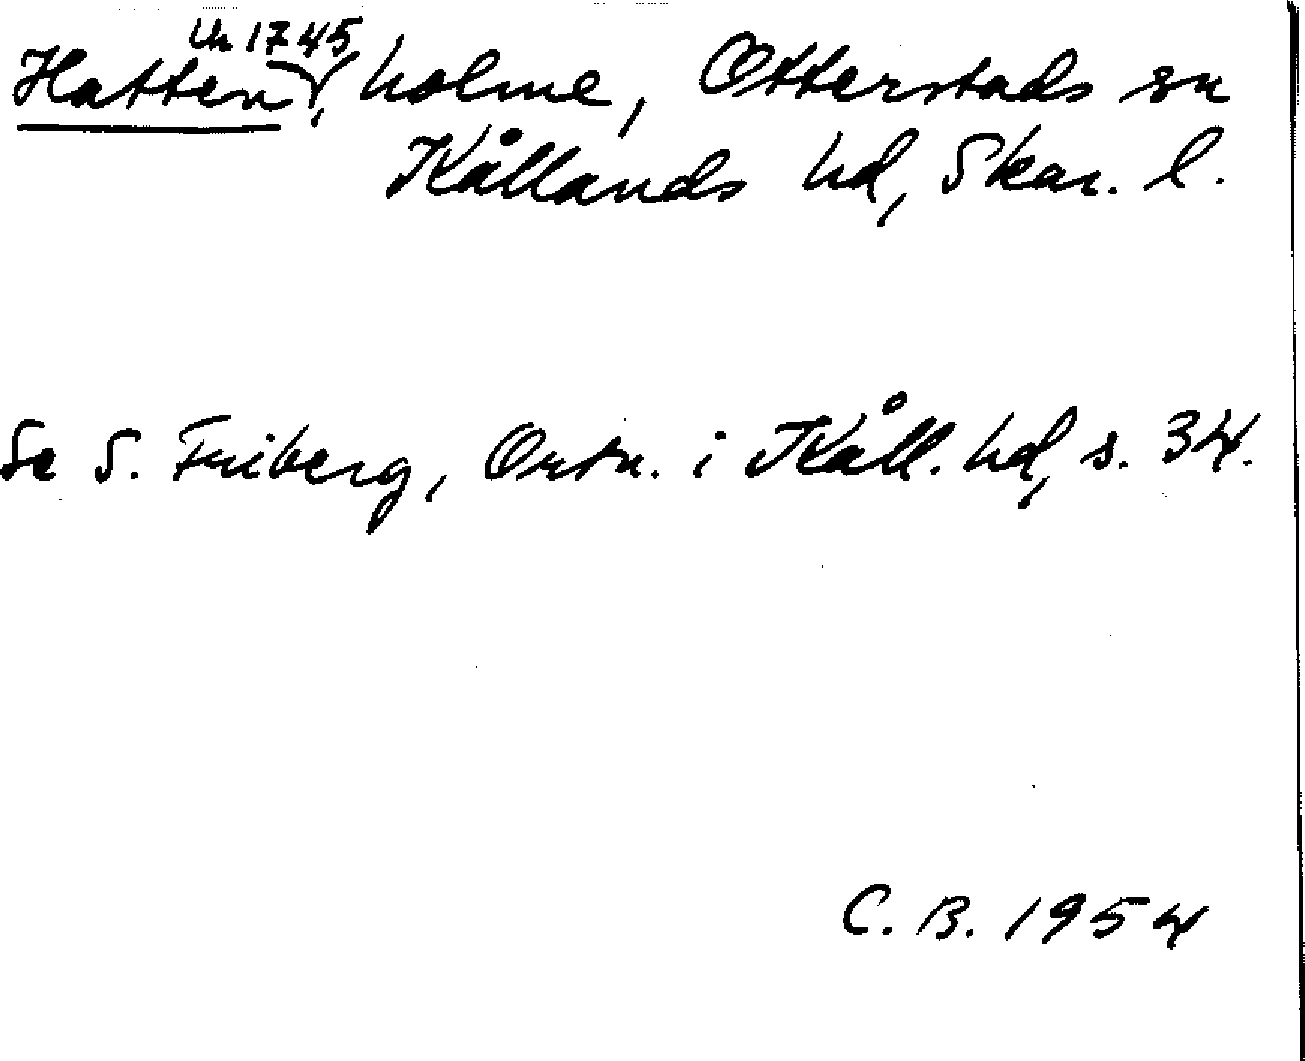 Uh 1745
Hatten, holme, Otterstads sn
Kållands hd, Skar. l.
Se S. Friberg, Ortn. i Kåll. hd, s. 34.
C. B. 1954